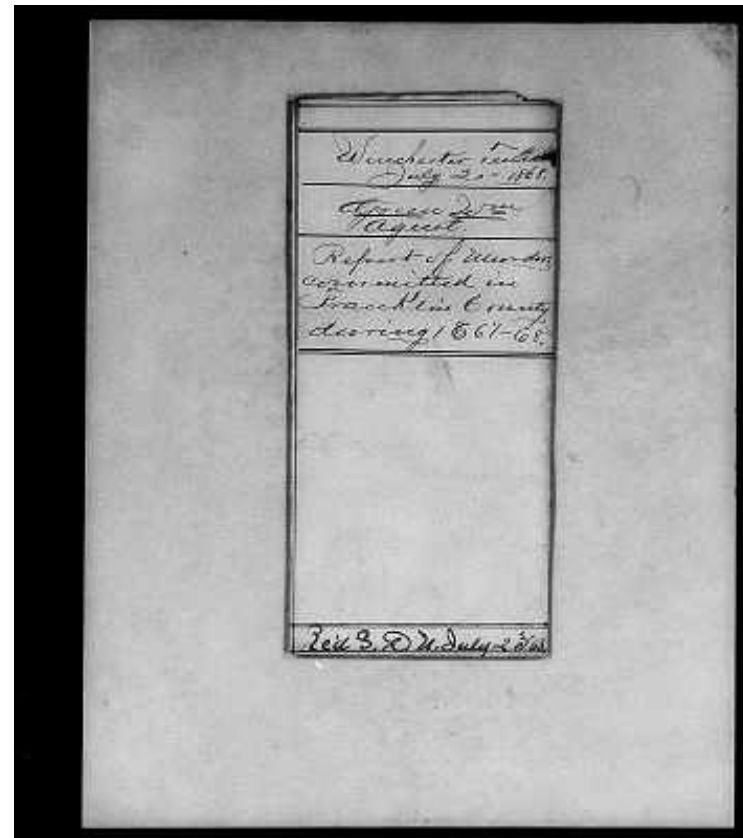 Winchester Tenn
July 20 - 1868.
Green Wm
Agent.
Report of Murders
committed in
Franklin County
during 1867-68.
Rec'd S. D. N. July 23/68